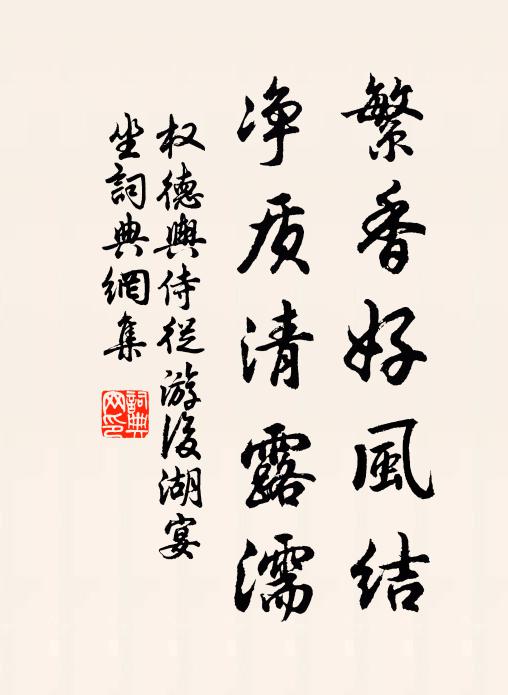 繁香好風結
净质清露濡
权德輿侍從游後湖宴
坐詞典網集
詞典
网印